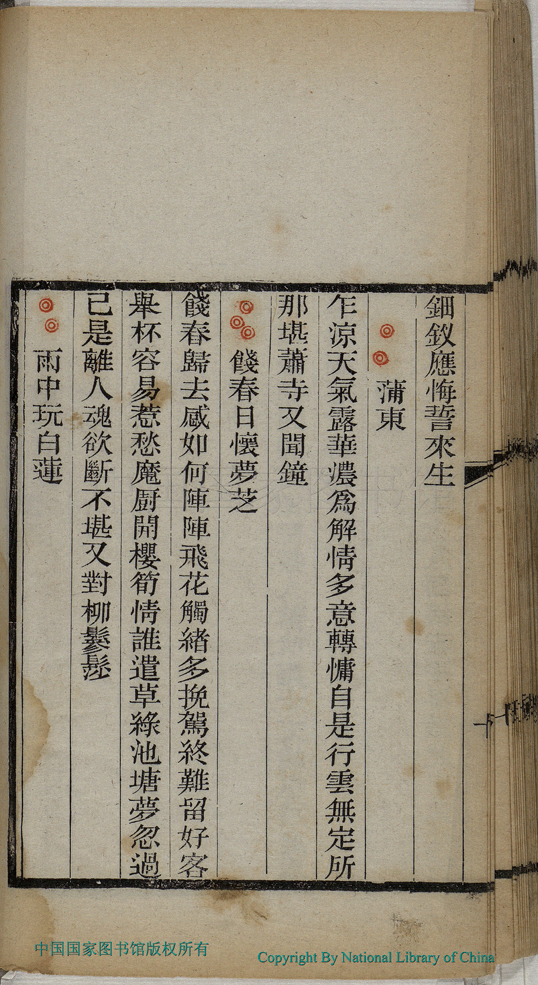 鈿釵應悔誓來生
蒲東
乍涼天氣露華濃爲解情多意轉慵自是行雲無定所
那堪蕭寺又聞鐘
餞春日懷夢芝
餞春歸去感如何陣陣飛花觸緒多挽駕終難留好客
舉杯容易惹愁魔厨開櫻筍情誰遣草綠池塘夢忽過
已是離人魂欲斷不堪又對柳鬖髿
雨中玩白蓮
中国国家图书馆版权所有
Copyright By National Library of China